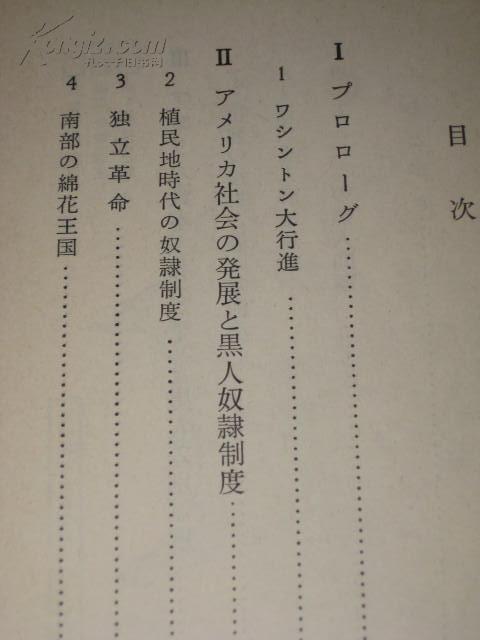 目次
I プロローグ
1 ワシントン大行進
II アメリカ社会の発展と黒人奴隷制度
2 植民地時代の奴隷制度
3 独立革命
4 南部の綿花王国
Kongfz.com
孔夫子旧书网